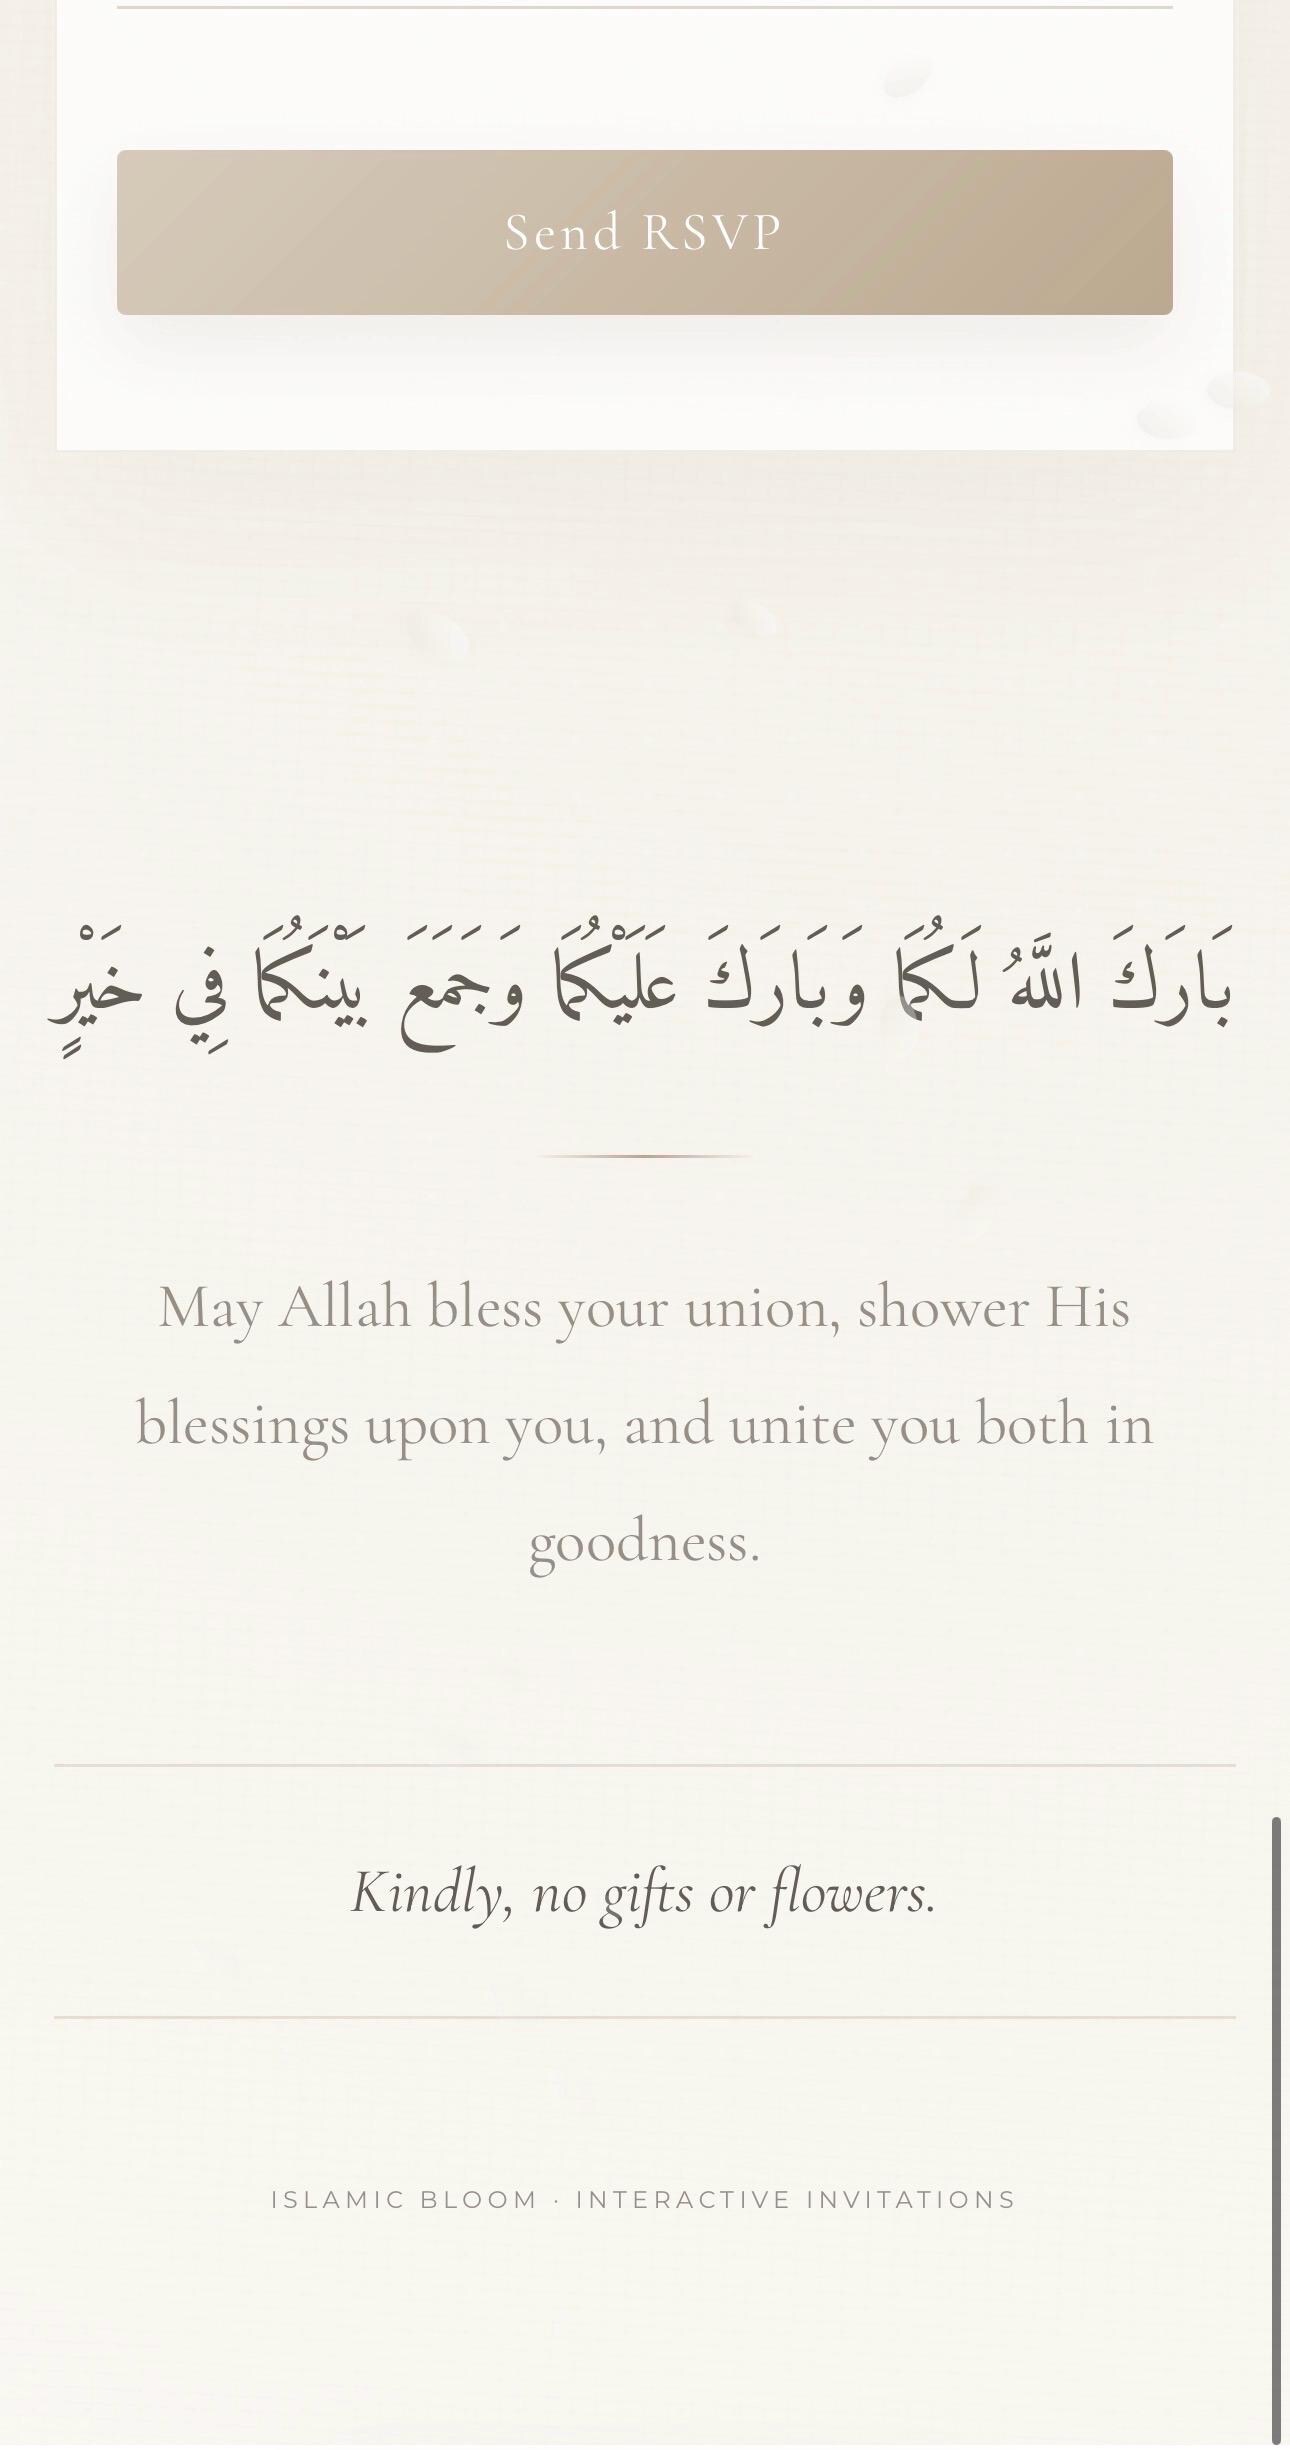 Send RSVP
بَارَكَ اللَّهُ لَكُمَا وَبَارَكَ عَلَيْكُمَا وَجَمَعَ بَيْنَكُمَا فِي خَيْرٍ
May Allah bless your union, shower His
blessings upon you, and unite you both in
goodness.
Kindly, no gifts or flowers.
ISLAMIC BLOOM · INTERACTIVE INVITATIONS